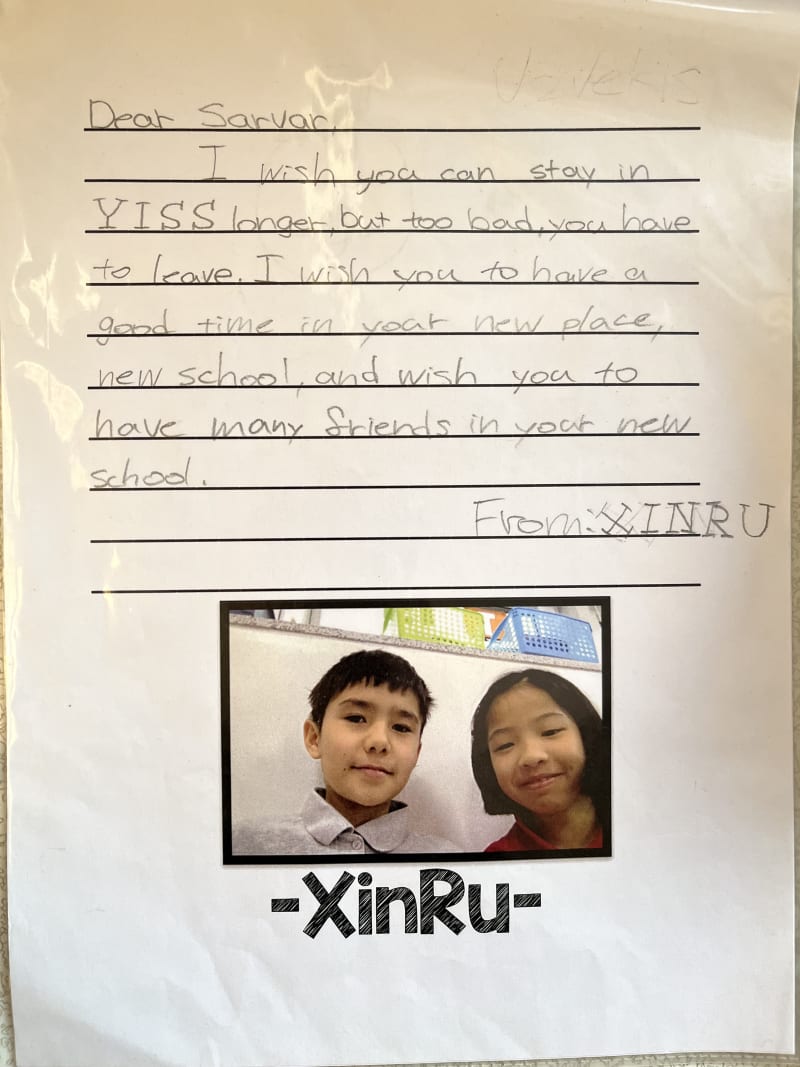 Dear Sarvar,
I wish you can stay in
YISS longer, but too bad, you have
to leave. I wish you to have a
good time in your new place,
new school, and wish you to
have many friends in your new
school.
From: XINRU
-XinRu-